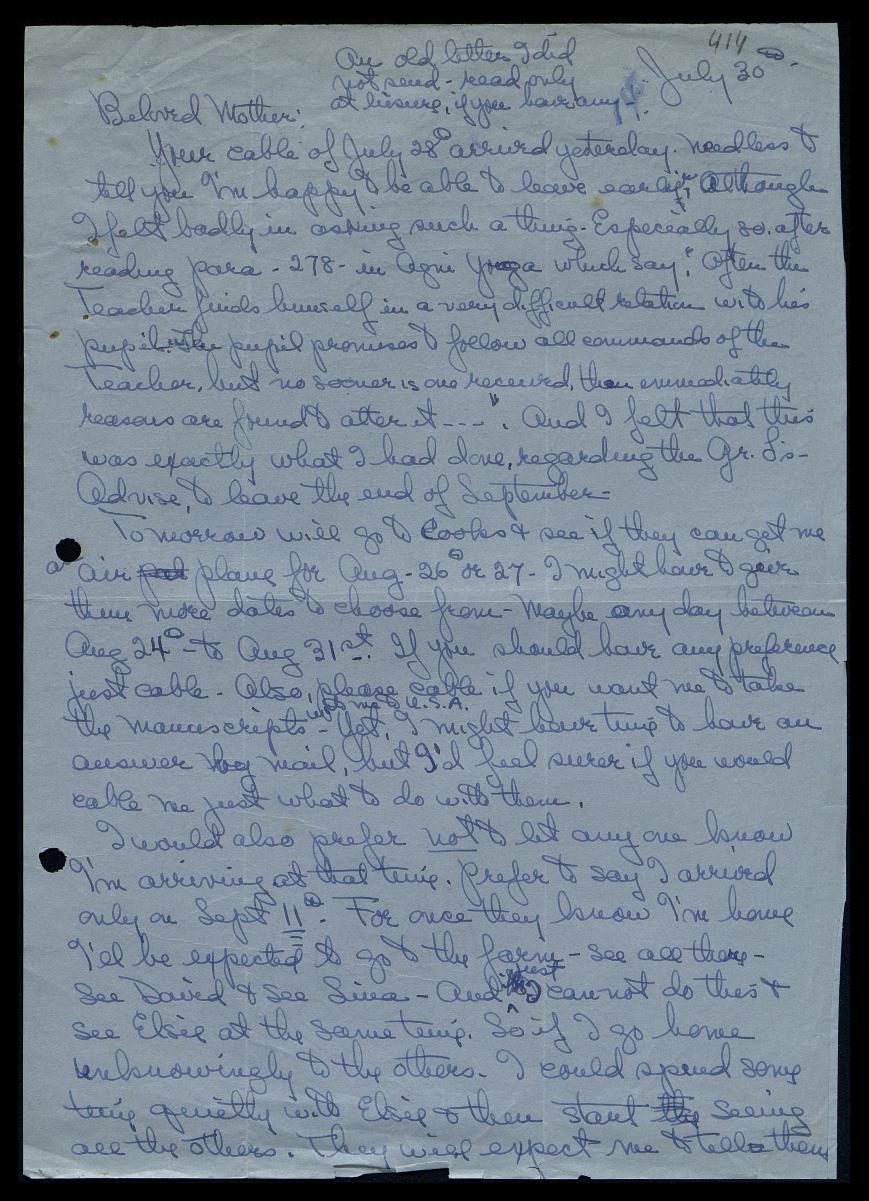 414
An old letter I did
not send - read only
at leisure, if you have any.
July 30th.
Beloved Mother:
Your cable of July 28th arrived yesterday. Needless to
tell you I'm happy to be able to leave earlier, although
I felt badly in asking such a thing - Especially so, after
reading para - 278 - in Agni Yoga which say; "Often the
Teacher finds himself in a very difficult relation with his
pupil. The pupil promises to follow all commands of the
Teacher, but no sooner is one received, than immediately
reasons are found to alter it - - - ". And I felt that this
was exactly what I had done, regarding the Gr. L's -
Advise, to leave the end of September =
Tomorrow will go to Cooks & see if they can get me
a air plane for Aug - 26th or 27 - I might have to give
them more dates to choose from - Maybe any day between
Aug 24th - to Aug 31st. If you should have any preference
just cable - Also, please cable if you want me to take
the manuscripts with me to U.S.A. - Yet, I might have time to have an
answer by mail, but I'd feel surer if you would
cable me just what to do with them.
I would also prefer not to let any one know
I'm arriving at that time. Prefer to say I arrived
only on Sept 11th. For once they know I'm home
I'll be expected to go to the farm - see all there -
see David & see Sina - And I just can not do this &
see Elsie at the same time. So if I go home
unknowingly to the others. I could spend some
time quietly with Elsie & then start seeing
all the others. They will expect me to tell them